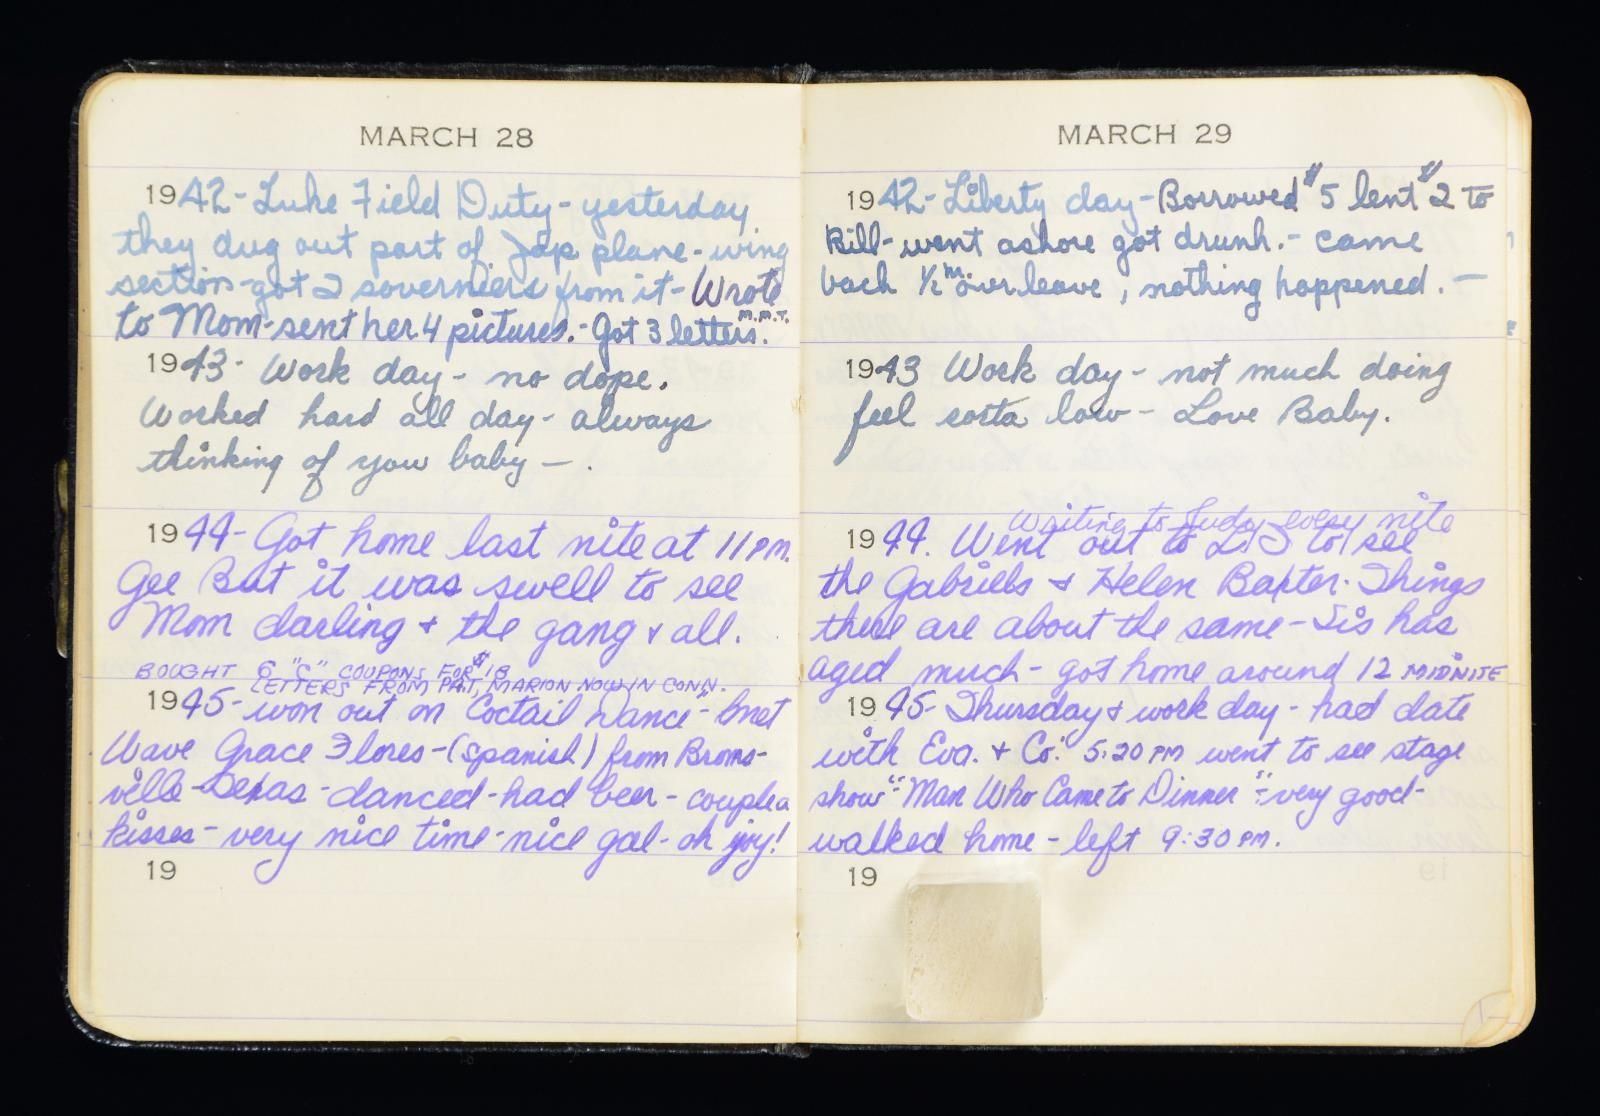 MARCH 28
1942-Luke Field Duty-yesterday
they dug out part of Jap plane-wing
section-got 2 soverniers from it-Wrote
to Mom-sent her 4 pictures.-Got 3 letters. M.M.T.
1943- Work day- no dope.
Worked hard all day- always
thinking of you baby-.
1944- Got home last nite at 11 PM.
Gee But it was swell to see
Mom darling + the gang + all.
BOUGHT 6 "C" COUPONS FOR $18
LETTERS FROM PAT, MARION NOW IN CONN.
1945- won out on "Coctail Dance"- met
Wave Grace Flores-(Spanish) from Browns-
ville-Texas-danced-had beer-couplea
kisses- very nice time-nice gal- oh joy!
19
MARCH 29
1942-Liberty day-Borrowed $5 lent $2 to
Bill-went ashore got drunk.- came
back 1/2 m. over leave, nothing happened.-
1943 Work day- not much doing
feel sorta low- Love Baby.
Writing to Judy every nite
1944. Went out to L.I. to see
the Gabriels + Helen Baxter. Things
there are about the same-Sis has
aged much- got home around 12 MIDNITE
1945- Thursday + work day- had date
with Eva. + Co." 5:20 PM went to see stage
show "Man Who Came to Dinner"-very good-
walked home-left 9:30 PM.
19